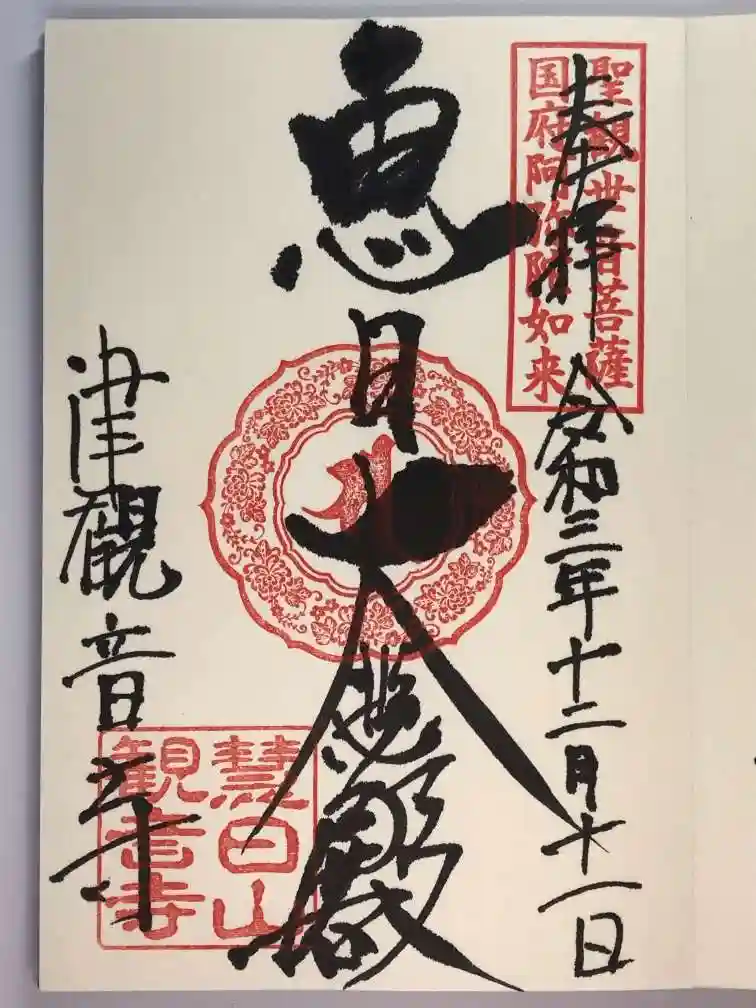 聖観世音菩薩
国府阿弥陀如来
奉拝
令和三年十二月十一日
恵日大悲殿
津觀音寺
慧日山
観音寺